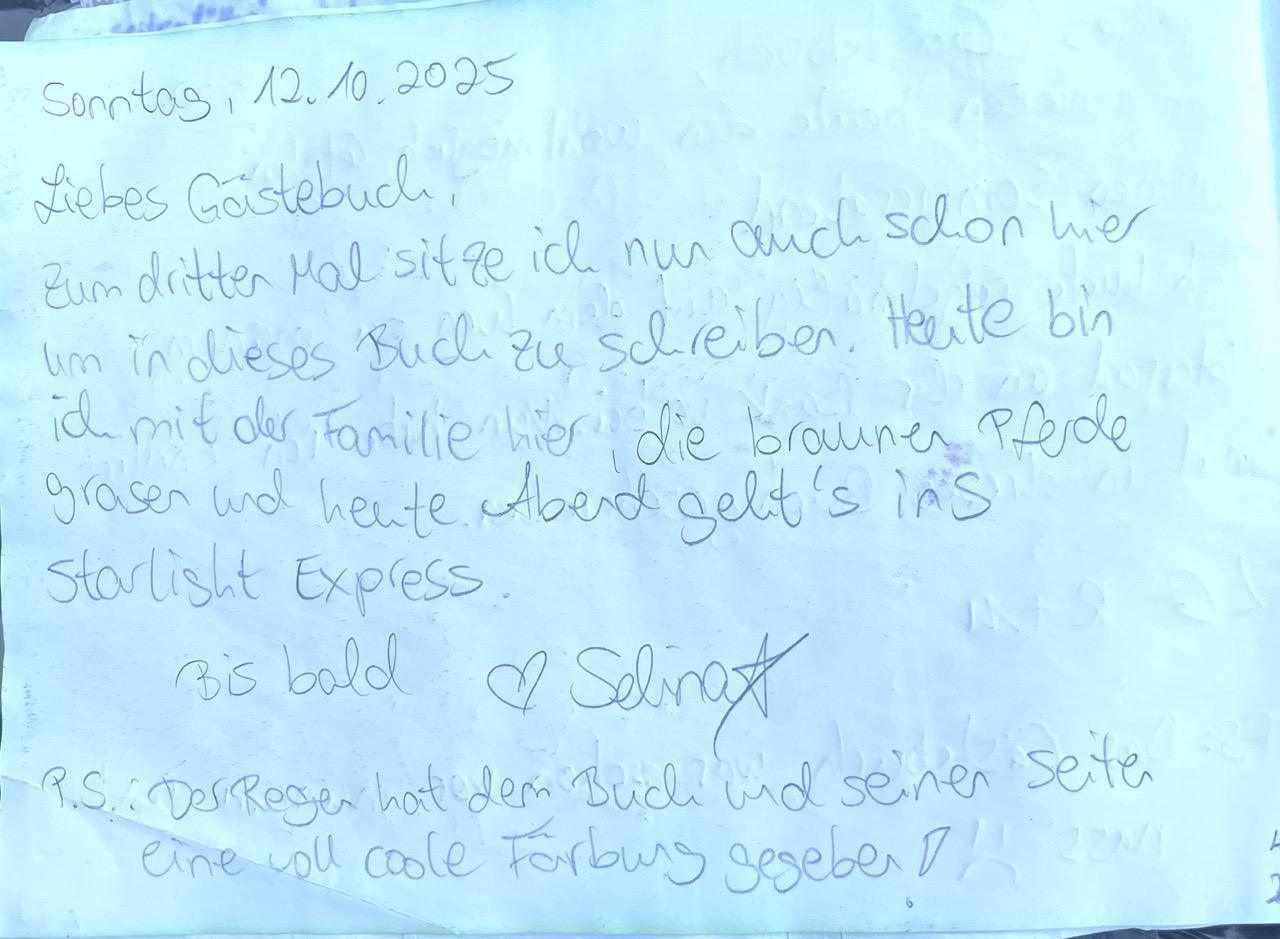 Sonntag, 12.10.2025
Liebes Gästebuch,
zum dritten Mal sitze ich nun auch schon hier
um in dieses Buch zu schreiben. Heute bin
ich mit der Familie hier, die braunen Pferde
grasen und heute Abend geht's ins
Starlight Express.
Bis bald ♡ Selina☆
P.S.: Der Regen hat dem Buch und seinen Seiten
eine voll coole Färbung gegeben!